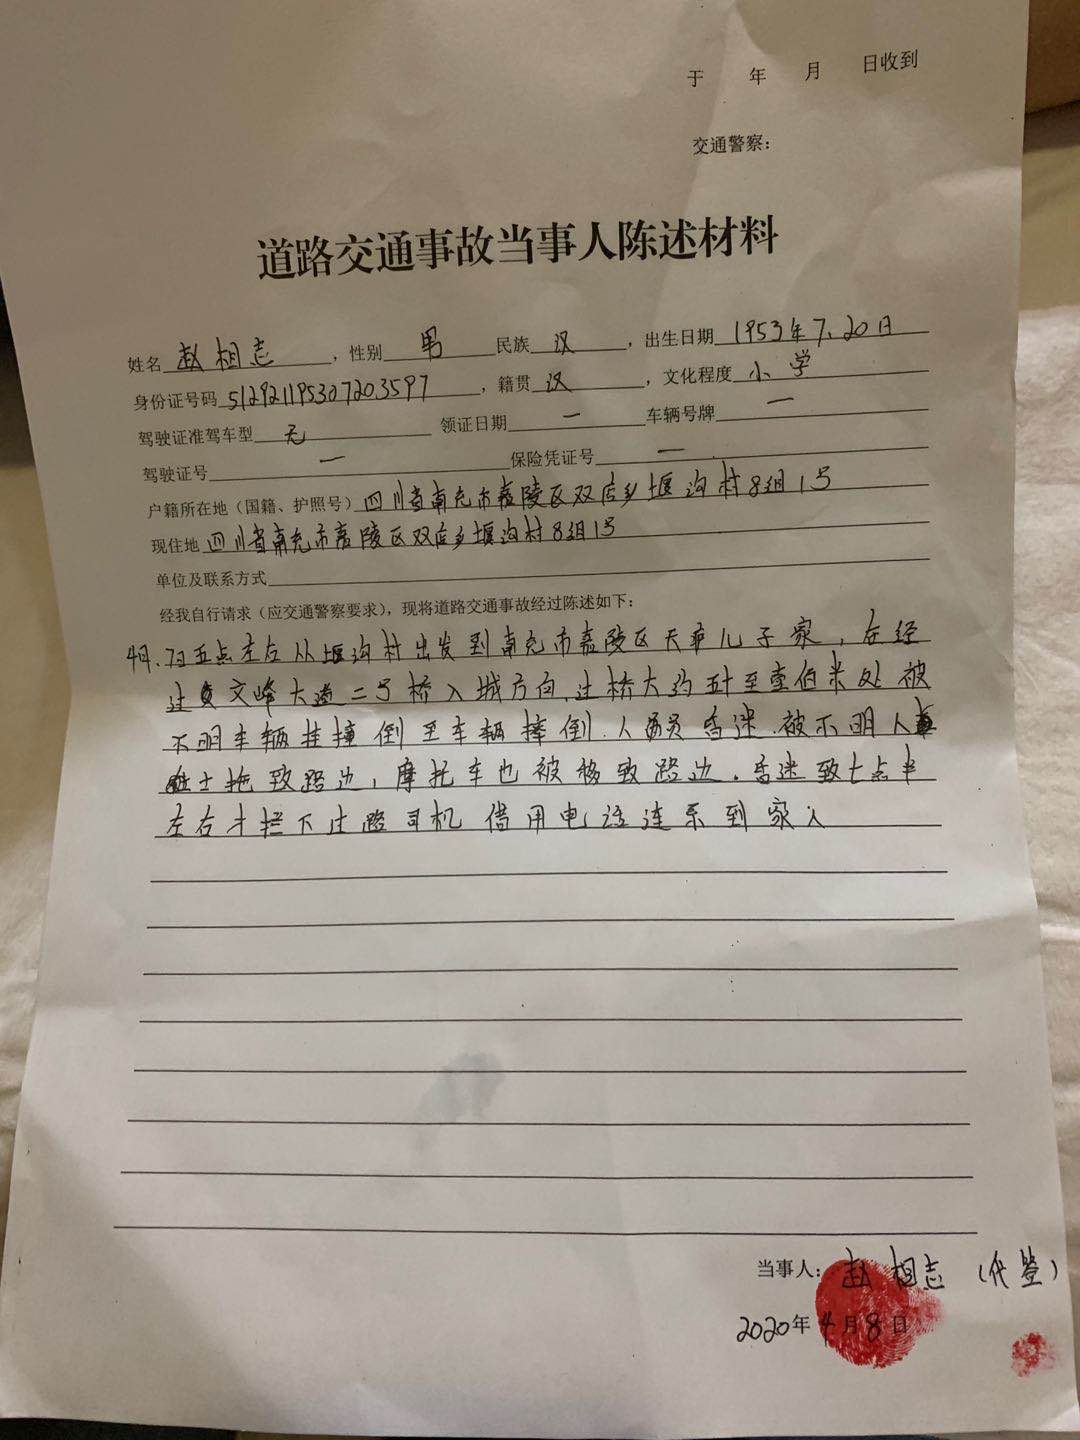 于 年 月 日收到
交通警察：
道路交通事故当事人陈述材料
姓名 赵相志 ，性别 男 民族 汉 ，出生日期 1953年7.20日
身份证号码 512921195307203597 ，籍贯 汉 ，文化程度 小学
驾驶证准驾车型 无 领证日期 一 车辆号牌 一
驾驶证号 一 保险凭证号 一
户籍所在地（国籍、护照号）四川省南充市嘉陵区双店乡堰沟村8组1号
现住地 四川省南充市嘉陵区双店乡堰沟村8组1号
单位及联系方式
经我自行请求（应交通警察要求），现将道路交通事故经过陈述如下：
4月.7日五点左右从堰沟村出发到南充市嘉陵区天 儿子家，在经
过文峰大道二号桥入城方向.过桥大约 至壹佰米处被
不明车辆挂撞倒至车辆摔倒.人员昏迷.被不明人
士拖致路边，摩托车也被移致路边.昏迷致七点半
左右才拦下过路司机借用电话连系到家人
当事人：赵相志（代签）
2020年4月8日